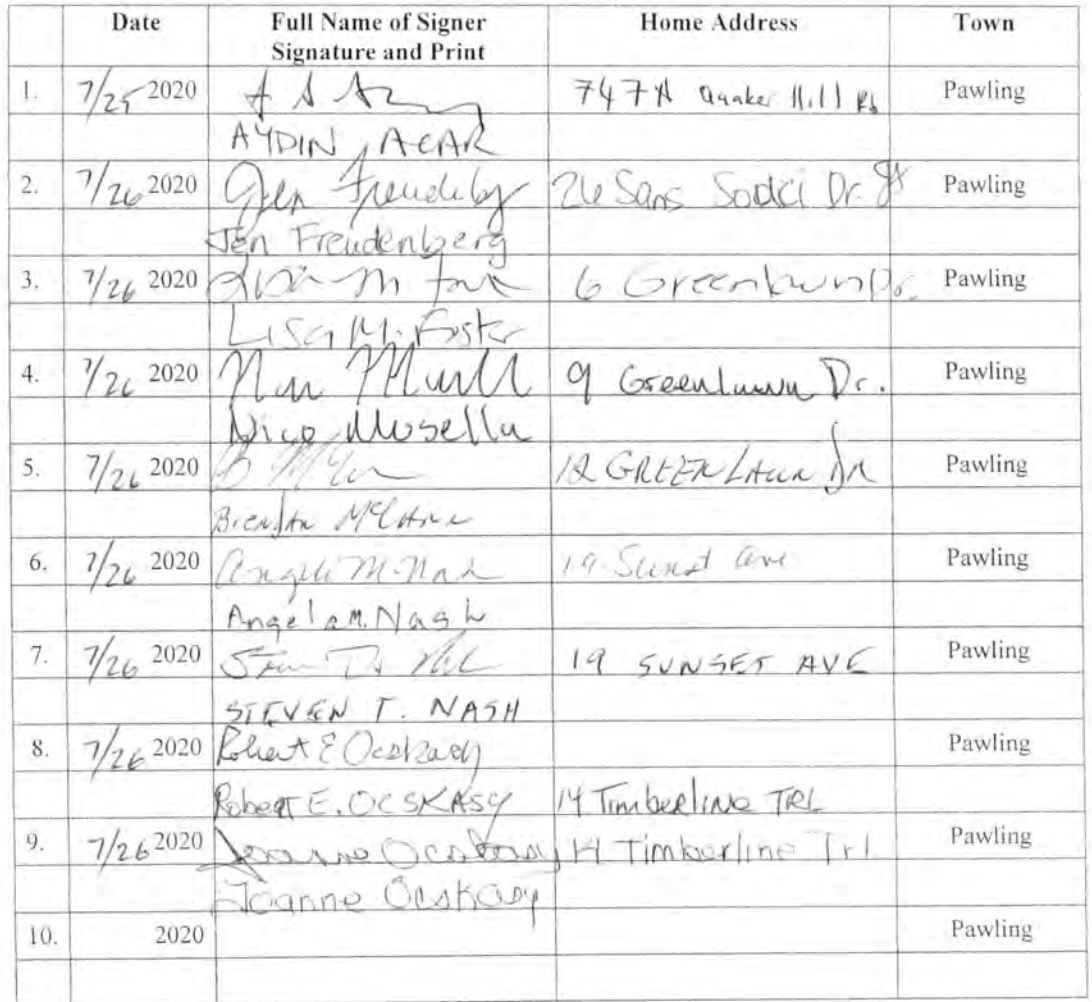 Date Full Name of Signer Home Address Town
Signature and Print
1. 7/25 2020 747A Quaker Hill Rd Pawling
AYDIN ACAR
2. 7/26 2020 Jen Freudenberg 26 Sans Souci Dr. Pawling
Jen Freudenberg
3. 7/26 2020 Lisa M Foster 6 Greenlawn Dr. Pawling
Lisa M. Foster
4. 7/26 2020 9 Greenlawn Dr. Pawling
Nico Musella
5. 7/26 2020 12 GREENLAWN DR Pawling
Brendan McCann
6. 7/26 2020 Angela M. Nash 19 Sunset Ave Pawling
Angela M. Nash
7. 7/26 2020 19 SUNSET AVE Pawling
STEVEN T. NASH
8. 7/26 2020 Robert E Ocskasy Pawling
Robert E. OCSKASY 14 Timberline TRL
9. 7/26 2020 Joanne Ocskasy 14 Timberline Trl Pawling
Joanne Ocskasy
10. 2020 Pawling